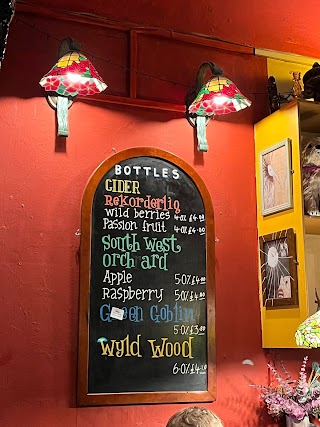 BOTTLES
CIDER
Rekorderlig
wild berries 4.0% £4.00
Passion fruit 4.0% £4.00
South West
orchard
Apple 5.0% £4.00
Raspberry 5.0% £4.00
Green Goblin
5.0% £3.80
Wyld Wood
6.0% £4.10